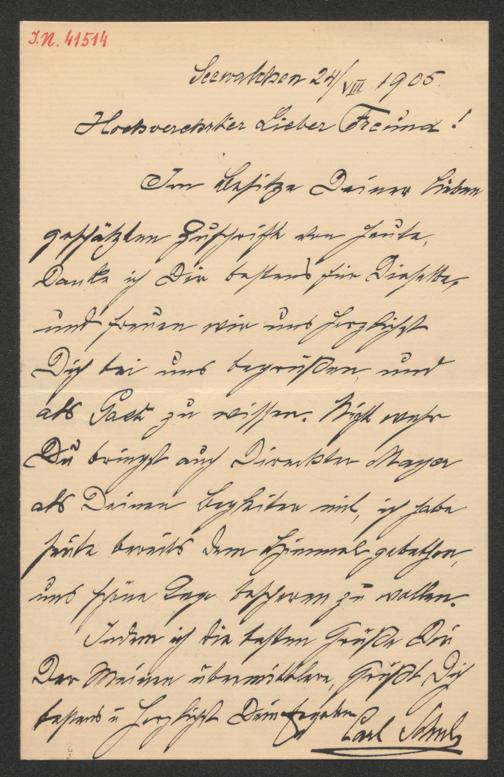 I.N. 41514
Seewalchen 24/VIII 1905.
Hochverehrter Lieber Freund!
Im Besitze Deiner lieben
geschätzten Zuschrift von heute,
Danke ich Dir bestens für Dieselbe,
und freuen wir uns herzlichst
Dich bei uns begrüßen und
als Gast zu wissen. Nicht wahr
Du bringst auch Direktor Mayer
als Deinen Begleiter mit, ich habe
heute bereits dem Himmel gebethen,
uns schöne Tage bescheren zu wollen.
Indem ich die besten Grüße von
Der Meinen übermittlere, Grüßt Dich
bestens u herzlichst Dein Ergebn
Carl